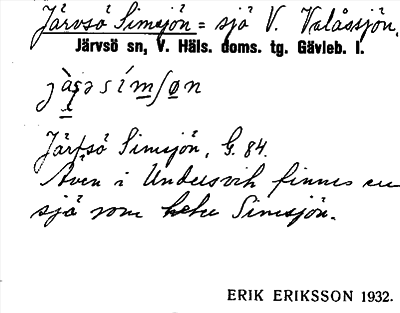 Järvsö Simsjön = sjö V. Valåssjön.
Järvsö sn, V. Häls. doms. tg. Gävleb. l.
Järfsö Simsjön, G. 84.
Även i Undersvik finnes en
sjö som heter Simsjön.
ERIK ERIKSSON 1932.